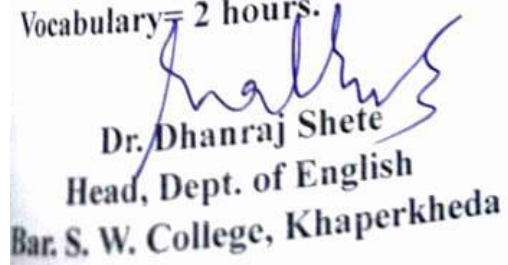 Vocabulary= 2 hours.
Dr. Dhanraj Shete
Head, Dept. of English
Bar. S. W. College, Khaperkheda